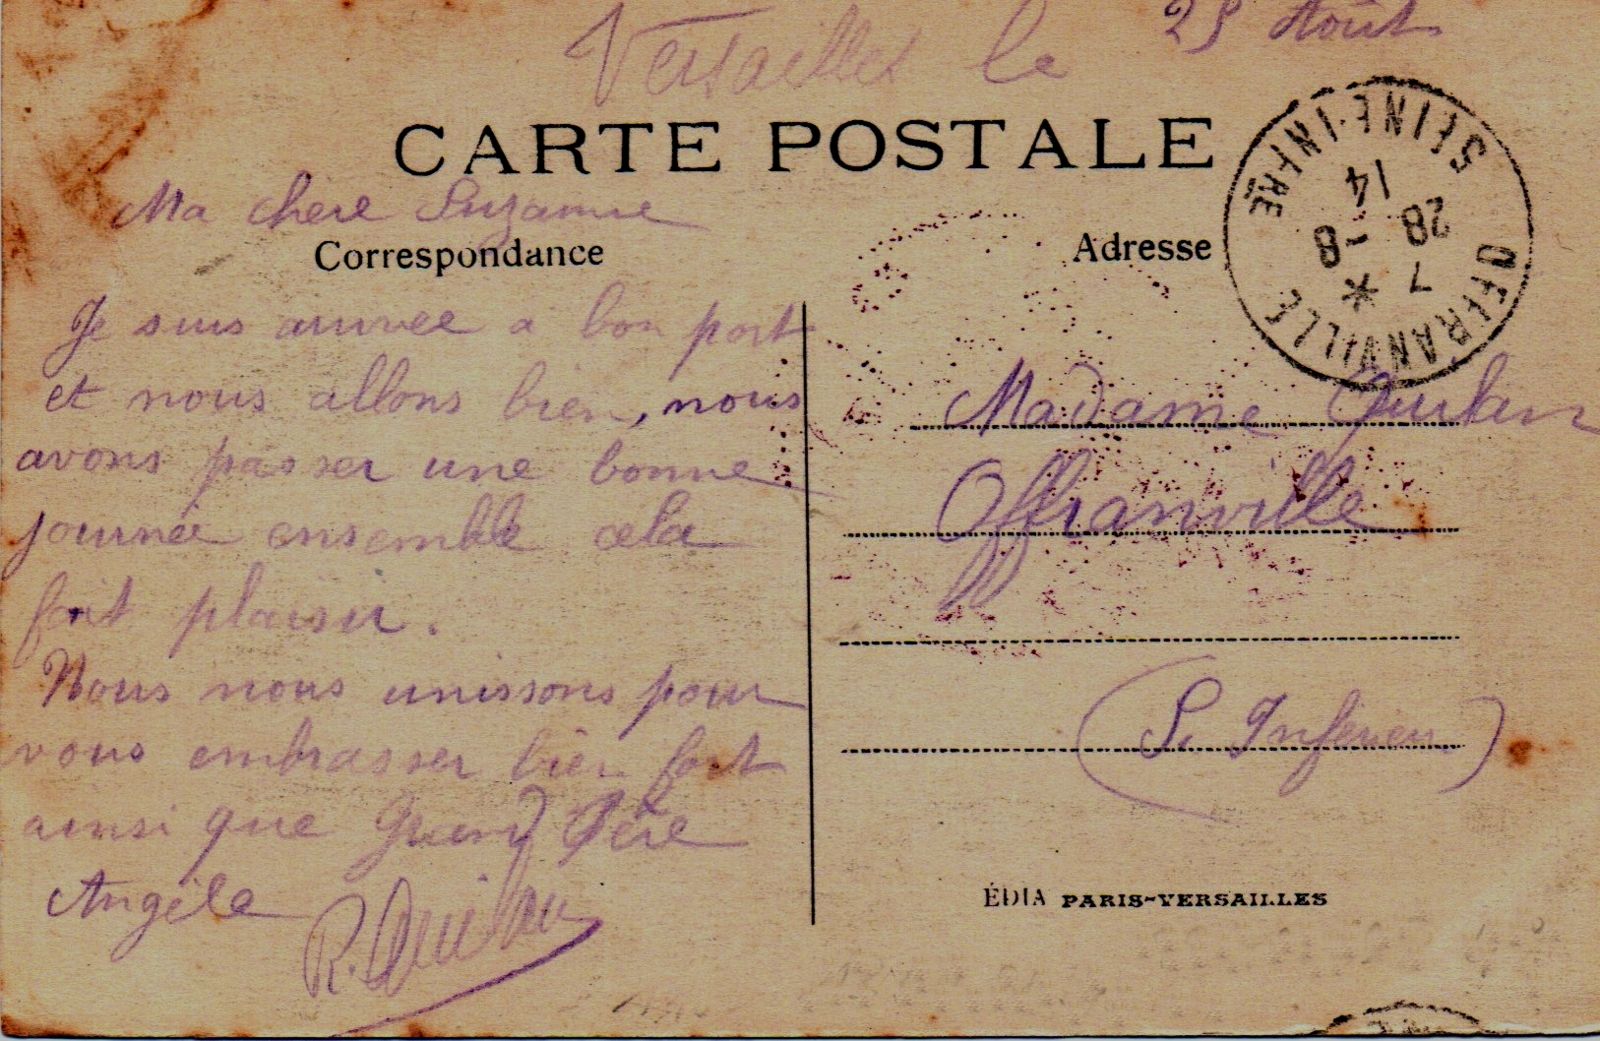 Versailles le 25 Août
CARTE POSTALE
Ma chère Suzanne
Correspondance
Je suis arrivée a bon port
et nous allons bien, nous
avons passer une bonne
journée ensemble cela
fait plaisir.
Nous nous unissons pour
vous embrasser bien fort
ainsi que Grand Père
Angèle
R.
Adresse
SEINE-INFRE
14
28 -8
7 *
OFFRANVILLE
Madame
Offranville
(S. Inférieu)
ÉDIA PARIS-VERSAILLES